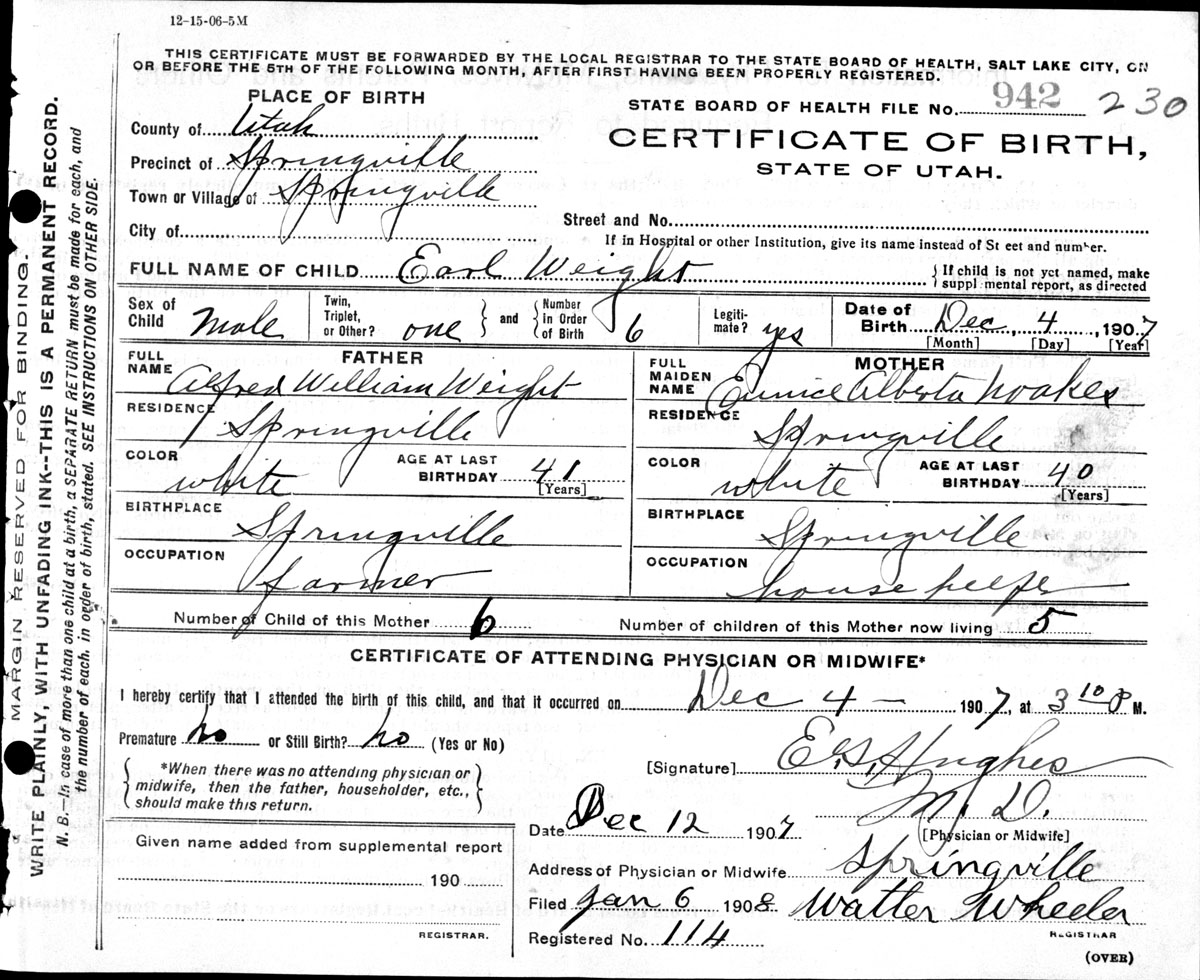 12-15-06-5M
THIS CERTIFICATE MUST BE FORWARDED BY THE LOCAL REGISTRAR TO THE STATE BOARD OF HEALTH, SALT LAKE CITY, ON
OR BEFORE THE 5TH OF THE FOLLOWING MONTH, AFTER FIRST HAVING BEEN PROPERLY REGISTERED.
PLACE OF BIRTH
STATE BOARD OF HEALTH FILE No. 942 230
County of Utah
CERTIFICATE OF BIRTH,
STATE OF UTAH.
Precinct of Springville
Town or Village of Springville
Street and No.
City of
If in Hospital or other Institution, give its name instead of St eet and number.
FULL NAME OF CHILD Earl Weight
If child is not yet named, make
suppl mental report, as directed
Sex of Child Male Twin, Triplet, or Other? one and Number in Order of Birth 6 Legiti- mate? yes Date of Birth Dec, 4, 1907
[Month] [Day] [Year]
FATHER
FULL NAME Alfred William Weight
RESIDENCE Springville
COLOR white AGE AT LAST BIRTHDAY 41
[Years]
BIRTHPLACE Springville
OCCUPATION farmer
MOTHER
FULL MAIDEN NAME Eunice Alberta Noakes
RESIDENCE Springville
COLOR white AGE AT LAST BIRTHDAY 40
[Years]
BIRTHPLACE Springville
OCCUPATION house keeper
Number of Child of this Mother 6 Number of children of this Mother now living 5
CERTIFICATE OF ATTENDING PHYSICIAN OR MIDWIFE*
I hereby certify that I attended the birth of this child, and that it occurred on Dec 4 — 1907, at 3 10 P M.
Premature no or Still Birth? no (Yes or No)
[Signature] E.G. Hughes
M. D.
[Physician or Midwife]
*When there was no attending physician or
midwife, then the father, householder, etc.,
should make this return.
Date Dec 12 1907
Given name added from supplemental report
190
REGISTRAR.
Address of Physician or Midwife Springville
Filed Jan 6 1908 Walter Wheeler
REGISTRAR
Registered No. 114
(OVER)
MARGIN RESERVED FOR BINDING.
WRITE PLAINLY, WITH UNFADING INK--THIS IS A PERMANENT RECORD.
N. B.—In case of more than one child at a birth, a SEPARATE RETURN must be made for each, and
the number of each, in order of birth, stated. SEE INSTRUCTIONS ON OTHER SIDE.